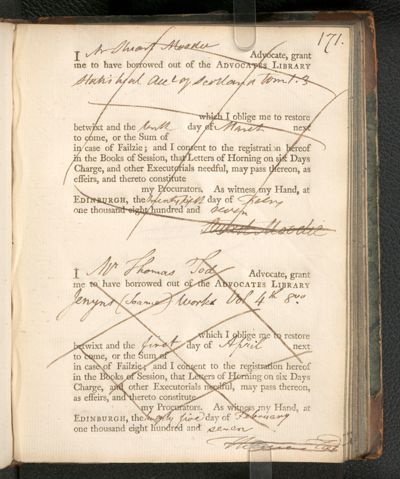 171.
I Mr Stuart Moodie Advocate, grant
me to have borrowed out of the ADVOCATES LIBRARY
Statistical Acct of Scotland tom. 3
which I oblige me to restore
betwixt and the tenth day of March next
to come, or the Sum of
in case of Failzie; and I consent to the registration hereof
in the Books of Session, that Letters of Horning on six Days
Charge, and other Executorials needful, may pass thereon, as
effeirs, and thereto constitute
my Procurators. As witness my Hand, at
EDINBURGH, the day of
one thousand eight hundred and seven
Stuart Moodie
I Mr Thomas Tod Advocate, grant
me to have borrowed out of the ADVOCATES LIBRARY
Jenyns (Soame) Works Vol 4th 8vo
which I oblige me to restore
betwixt and the first day of April next
to come, or the Sum of
in case of Failzie; and I consent to the registration hereof
in the Books of Session, that Letters of Horning on six Days
Charge, and other Executorials needful, may pass thereon,
as effeirs, and thereto constitute
my Procurators. As witness my Hand, at
EDINBURGH, the twenty five day of February
one thousand eight hundred and seven
Thomas Tod